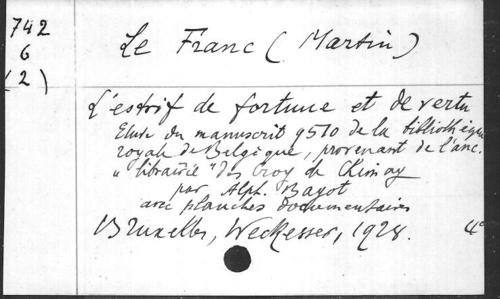 742
6
(2)
Le Franc (Martin)
L'estrif de fortune et de vertu
Etude du manuscrit 9510 de la bibliothèque
royale de Belgique, provenant de l'anc.
"librairie" des Croy de Chimay
par Alph. Bayot
avec planches documentaires
Bruxelles, Weckesser, 1928. 4°